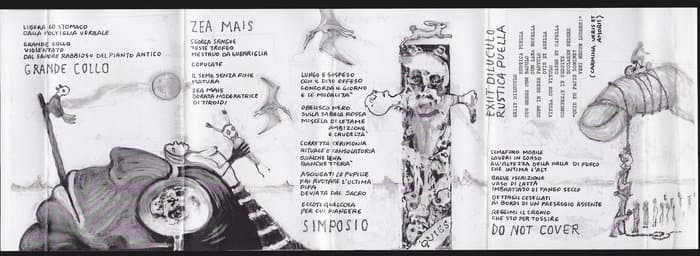 LIBERA LO STOMACO
DALLA POLTIGLIA VERBALE
GRANDE COLLO
VIOLENTATO
DAL SAPORE RABBIOSO DEL PIANTO ANTICO
GRANDE COLLO
ZEA MAIS
SGORGA SANGUE
TESTE TROFEO
MESTRUO DA GUERRIGLIA
COPULATE
IL SEME SENZA FINE
MATURA
ZEA MAIS
DORATA MODERATRICE
DI TIROIDI
LUNGO E SOSPESO
CON IL DITO OFFESO
CONCORDA IL GIORNO
E LE MODALITA'
OBELISCO NERO
SULLA SABBIA ROSSA
MISCELA DI LETAME
AMBIZIONE
E CRUDELTA'
CORRETTA CERIMONIA
RITUALE E CONSOLATORIA
QUALCHE IENA
BANCHETTERA'
ASCIUGATI LE PUPILLE
FAI RUOTARE L'ULTIMA
PIPA
DEVIATA DAL SACRO
ECCOTI QUALCOSA
PER CUI PIANGERE
SIMPOSIO
QUIES
EXIIT DILUCULO
RUSTICA PUELLA
EXIIT DILUCULO RUSTICA PUELLA
CUM GREGE CUM BACULO CUM LANA NOVELLA
SUNT IN GREGE PARVULO OVIS ET ASELLA
VITULA CUM VITULO CAPER ET CAPELLA
CONSPEXIT IN CESPITE SCOLAREM SEDERE
"QUID TU FACIS DOMINE? VENI MECUM LUDERE!"
(CARMINA VERIS ET
AMORIS)
SEMAFORO MOBILE
LAVORI IN CORSO
ALL'ALTEZZA DELLA PALLA DI FUOCO
CHE INTIMA L'ALT
BREVE ISCRIZIONE
VASO DI LATTA
IMBRATTATO DI FANGO SECCO
DETTAGLI CESELLATI
AI BORDI DI UN PAESAGGIO ASSENTE
REGGIMI IL CRANIO
CHE STO PER TOSSIRE
DO NOT COVER